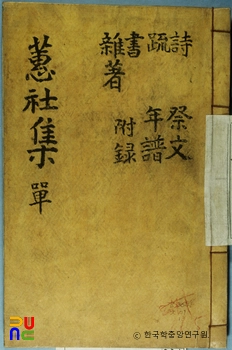 詩 祭文
疏 年譜
書 附録
雜著
蕙社集 單
© 한국학중앙연구원